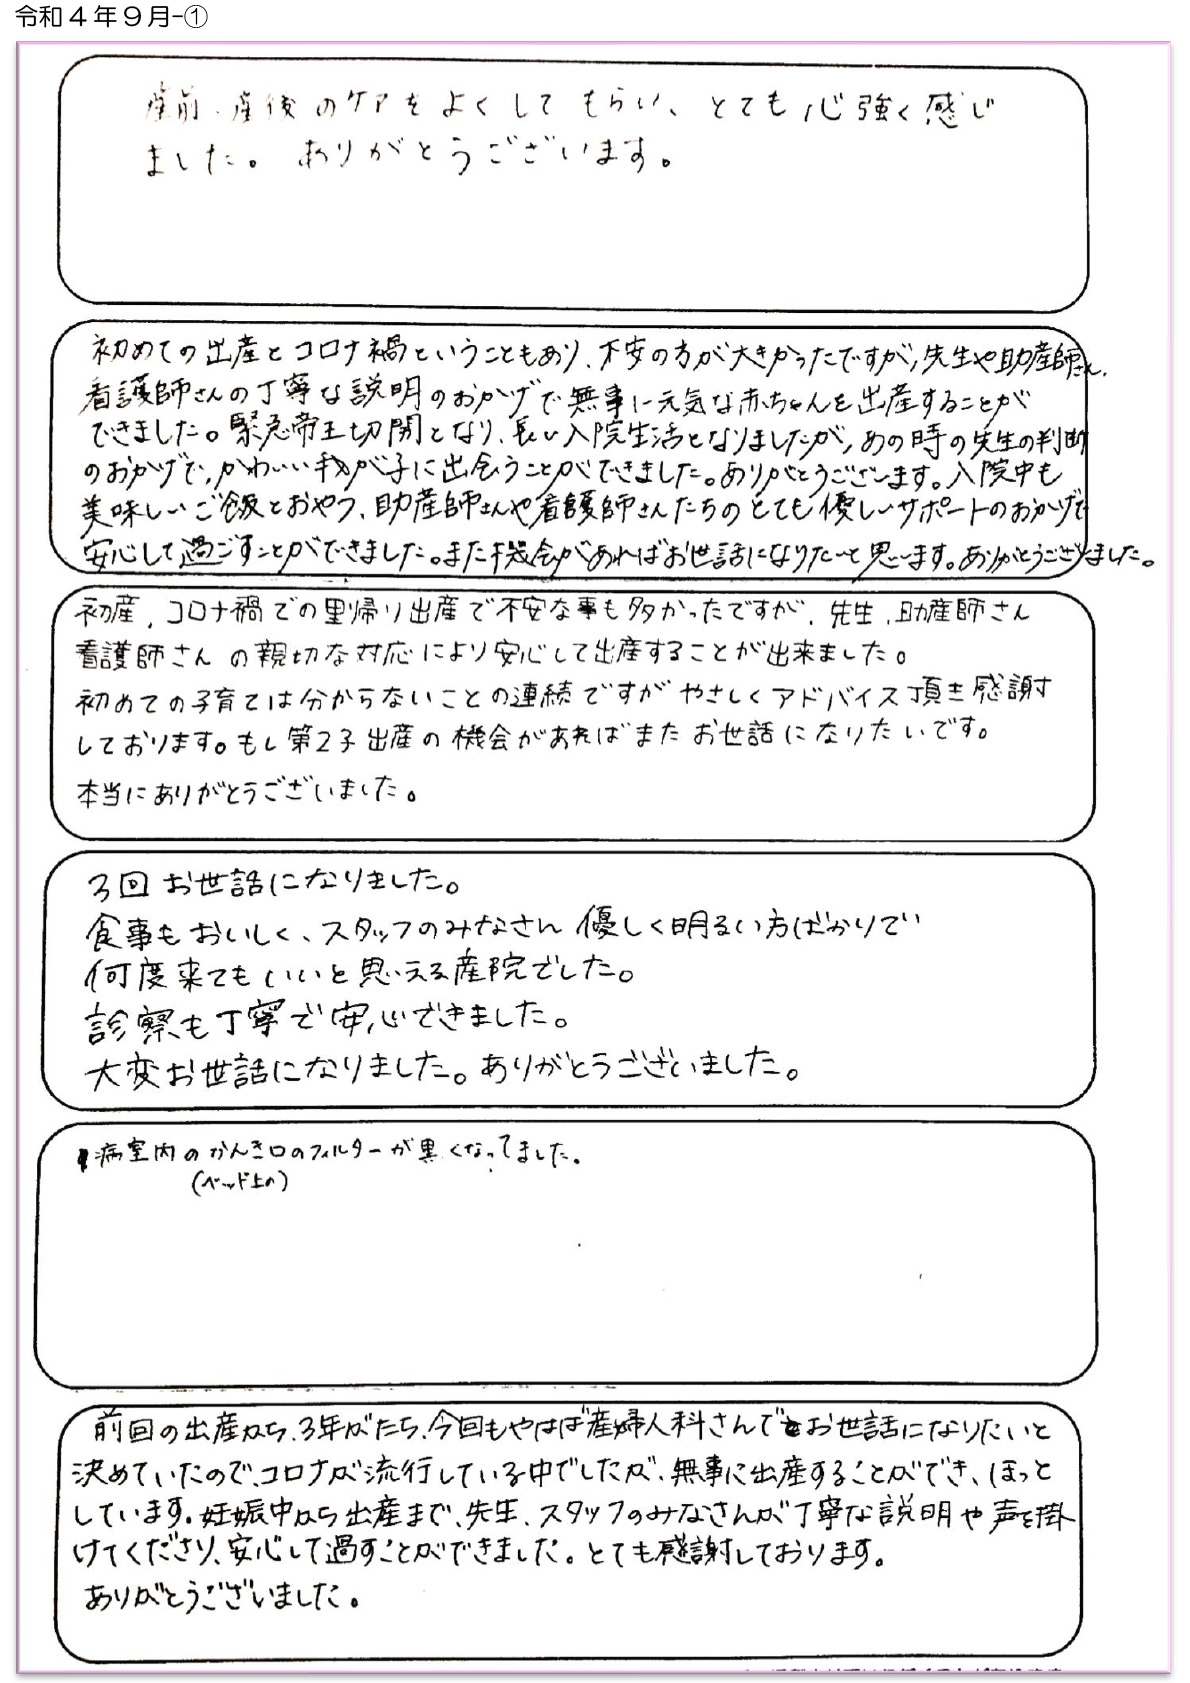 令和４年９月-①
産前、産後のケアをよくしてもらい、とても心強く感じ
ました。ありがとうございます。
初めての出産とコロナ禍ということもあり、不安の方が大きかったですが、先生や助産師さん、
看護師さんの丁寧な説明のおかげで無事に元気な赤ちゃんを出産することが
できました。緊急帝王切開となり、長い入院生活となりましたが、あの時の先生の判断
のおかげで、かわいい我が子に出会うことができました。ありがとうございます。入院中も
美味しいご飯とおやつ、助産師さんや看護師さんたちのとても優しいサポートのおかげで
安心して過ごすことができました。また機会があればお世話になりたいと思います。ありがとうございました。
初産、コロナ禍での里帰り出産で不安な事も多かったですが、先生、助産師さん
看護師さんの親切な対応により安心して出産することが出来ました。
初めての子育ては分からないことの連続ですがやさしくアドバイス頂き感謝
しております。もし第2子出産の機会があればまたお世話になりたいです。
本当にありがとうございました。
3回お世話になりました。
食事もおいしく、スタッフのみなさん優しく明るい方ばかりでい
何度来てもいいと思える産院でした。
診察も丁寧で安心できました。
大変お世話になりました。ありがとうございました。
病室内のかんき口のフィルターが黒くなってました。
(ベッド上の)
前回の出産から、3年がたち、今回もやはば産婦人科さんでお世話になりたいと
決めていたので、コロナが流行している中でしたが、無事に出産することができ、ほっと
しています。妊娠中から出産まで、先生、スタッフのみなさんが丁寧な説明や声を掛
けてくださり、安心して過すことができました。とても感謝しております。
ありがとうございました。